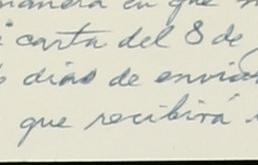 manera en que
carta del 8 de
dias de enviar
que recibirá